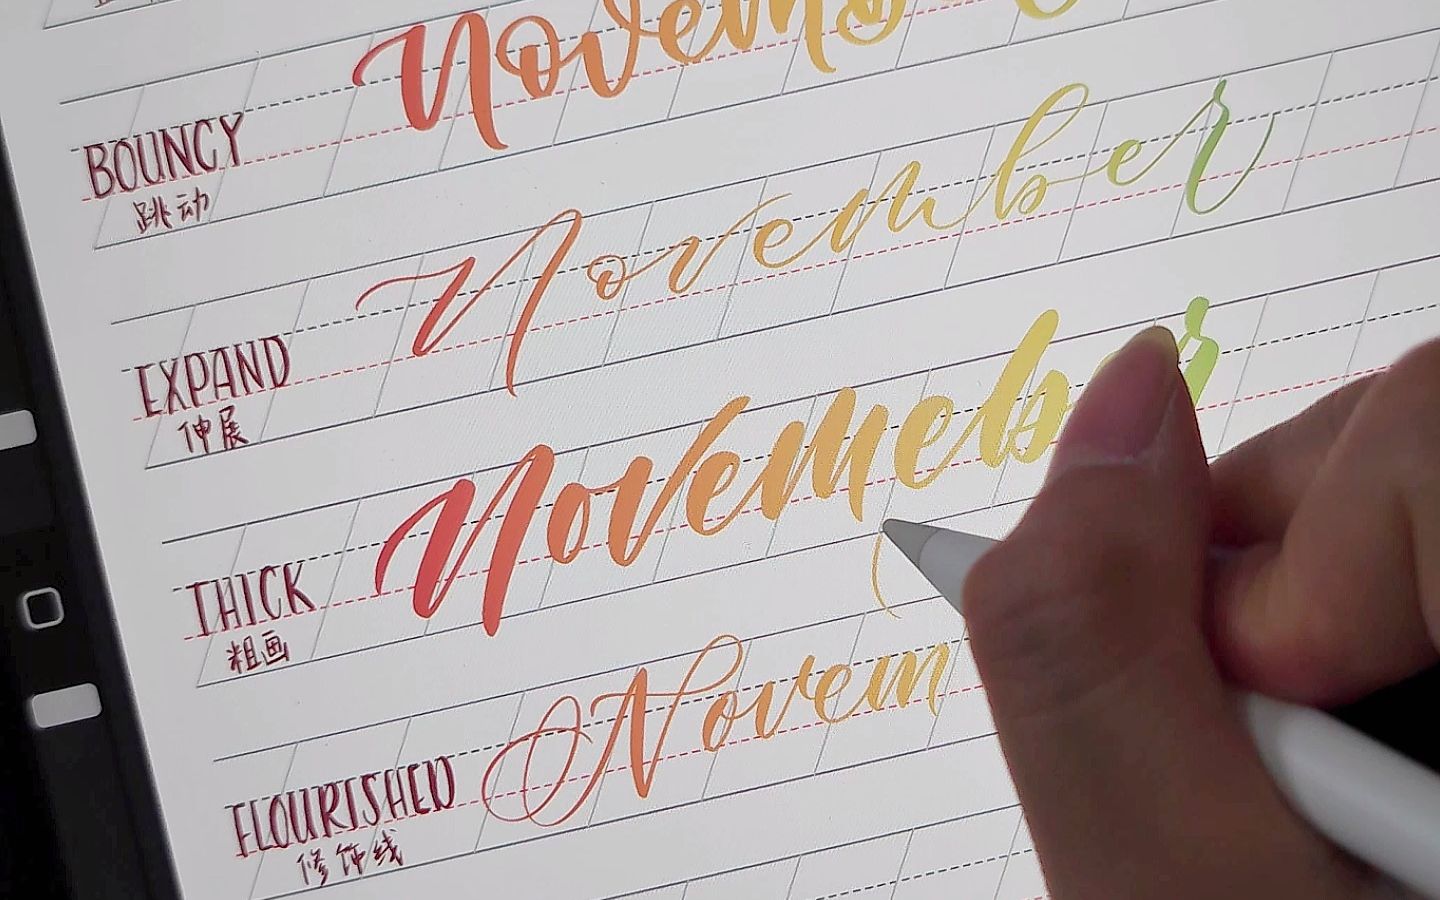 Novemb
BOUNCY
跳动
November
EXPAND
伸展
Novemeber
THICK
粗画
Novem
FLOURISHED
修饰线